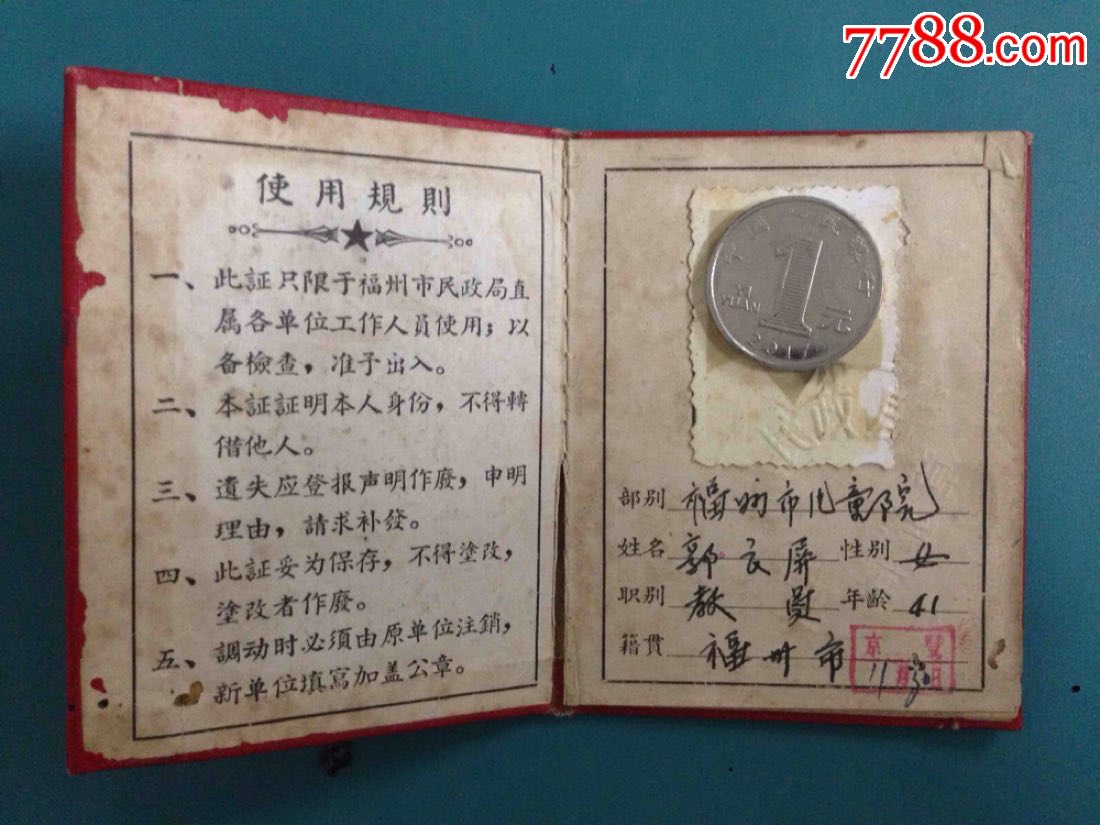 7788.com
使用規則
一、此証只限于福州市民政局直
属各单位工作人員使用；以
备檢查，准予出入。
二、本証証明本人身份，不得轉
借他人。
三、遺失应登报声明作廢，申明
理由，請求补發。
四、此証妥为保存，不得塗改，
塗改者作廢。
五、調动时必須由原单位注銷，
新单位填寫加盖公章。
1
YUAN
元
民政
部别 福州市儿童院
姓名 郭良屏 性别 女
职别 教員 年龄 41
籍貫 福州市
月 日